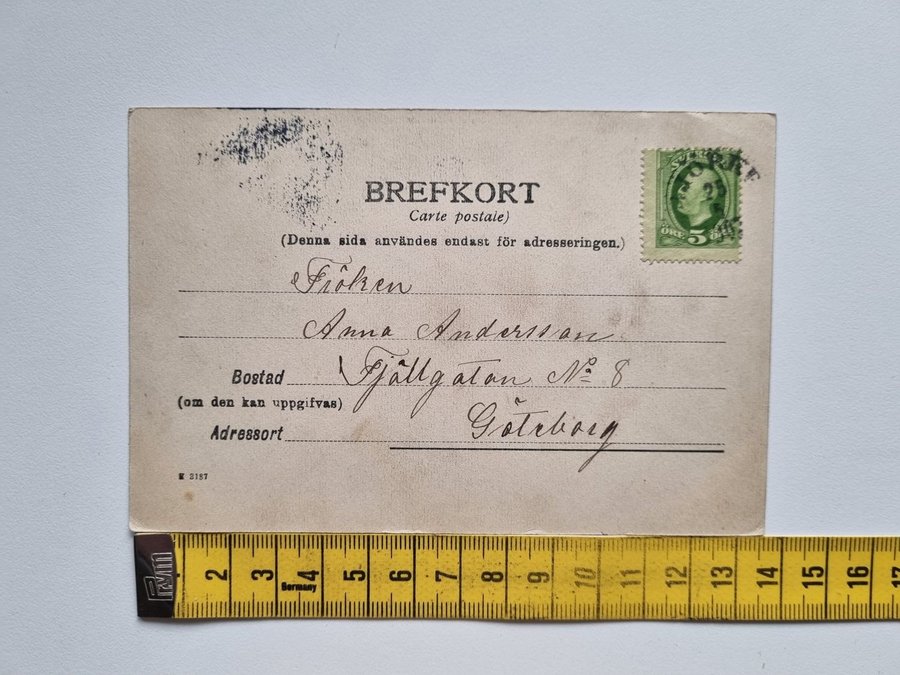 BREFKORT
Carte postale)
(Denna sida användes endast för adresseringen.)
Fröken
Anna Andersson
Bostad Fjällgatan No 8
(om den kan uppgifvas)
Adressort Göteborg
ÖRE 5
2 3 4 5 6 7 8 9 10 11 12 13 14 15 16 17
Germany